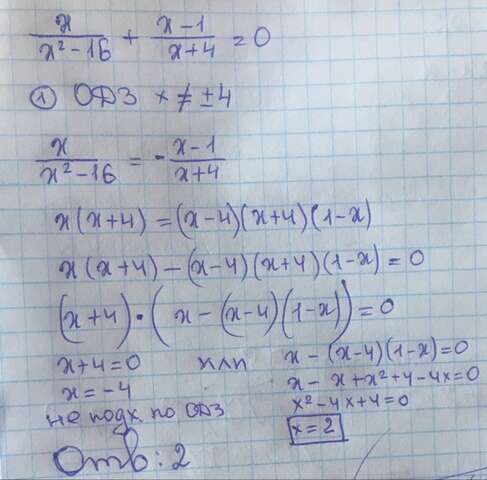 x/(x²-16) + (x-1)/(x+4) = 0
① ОДЗ x ≠ ±4
x/(x²-16) = -(x-1)/(x+4)
x(x+4) = (x-4)(x+4)(1-x)
x(x+4) - (x-4)(x+4)(1-x) = 0
(x+4)·(x - (x-4)(1-x)) = 0
x+4=0 или x - (x-4)(1-x)=0
x=-4 x - x+x²+4-4x=0
не подх. по ОДЗ x²-4x+4=0
x=2
Отв: 2